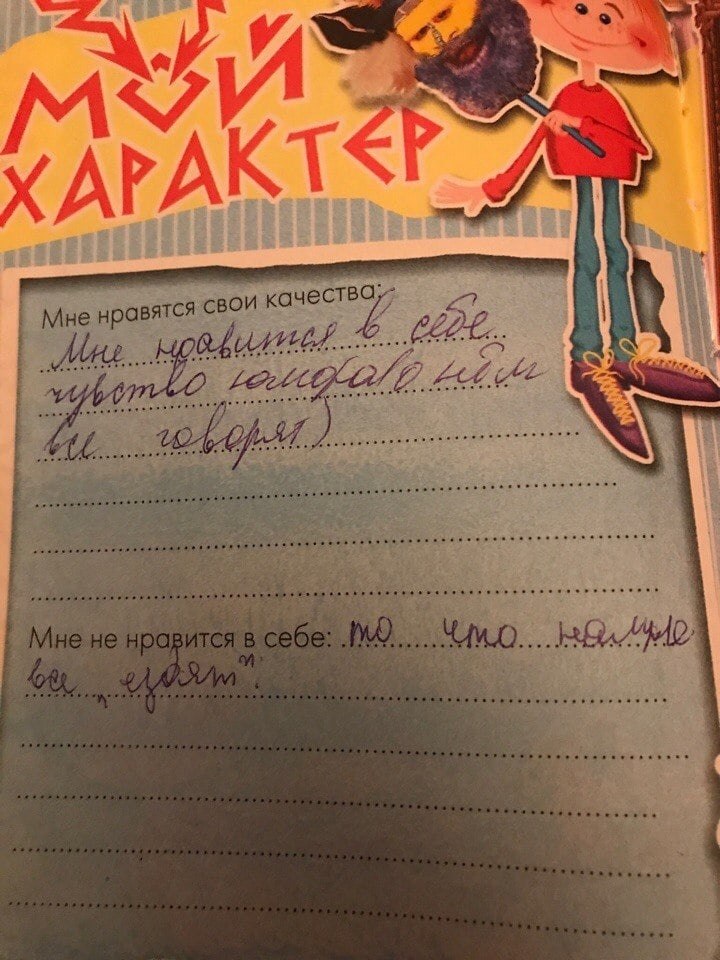 МОЙ
ХАРАКТЕР
Мне нравятся свои качества:
Мне нравится в себе
чувство юмора
все говорят)
Мне не нравится в себе: то что
все „ездят".